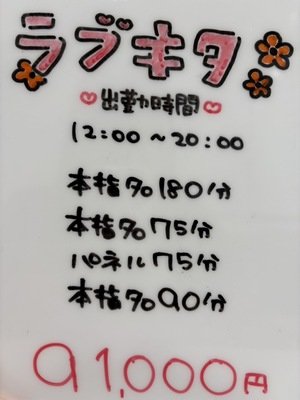 ラブキタ
出勤時間
12:00~20:00
本指名180分
本指名75分
パネル75分
本指名90分
91,000円